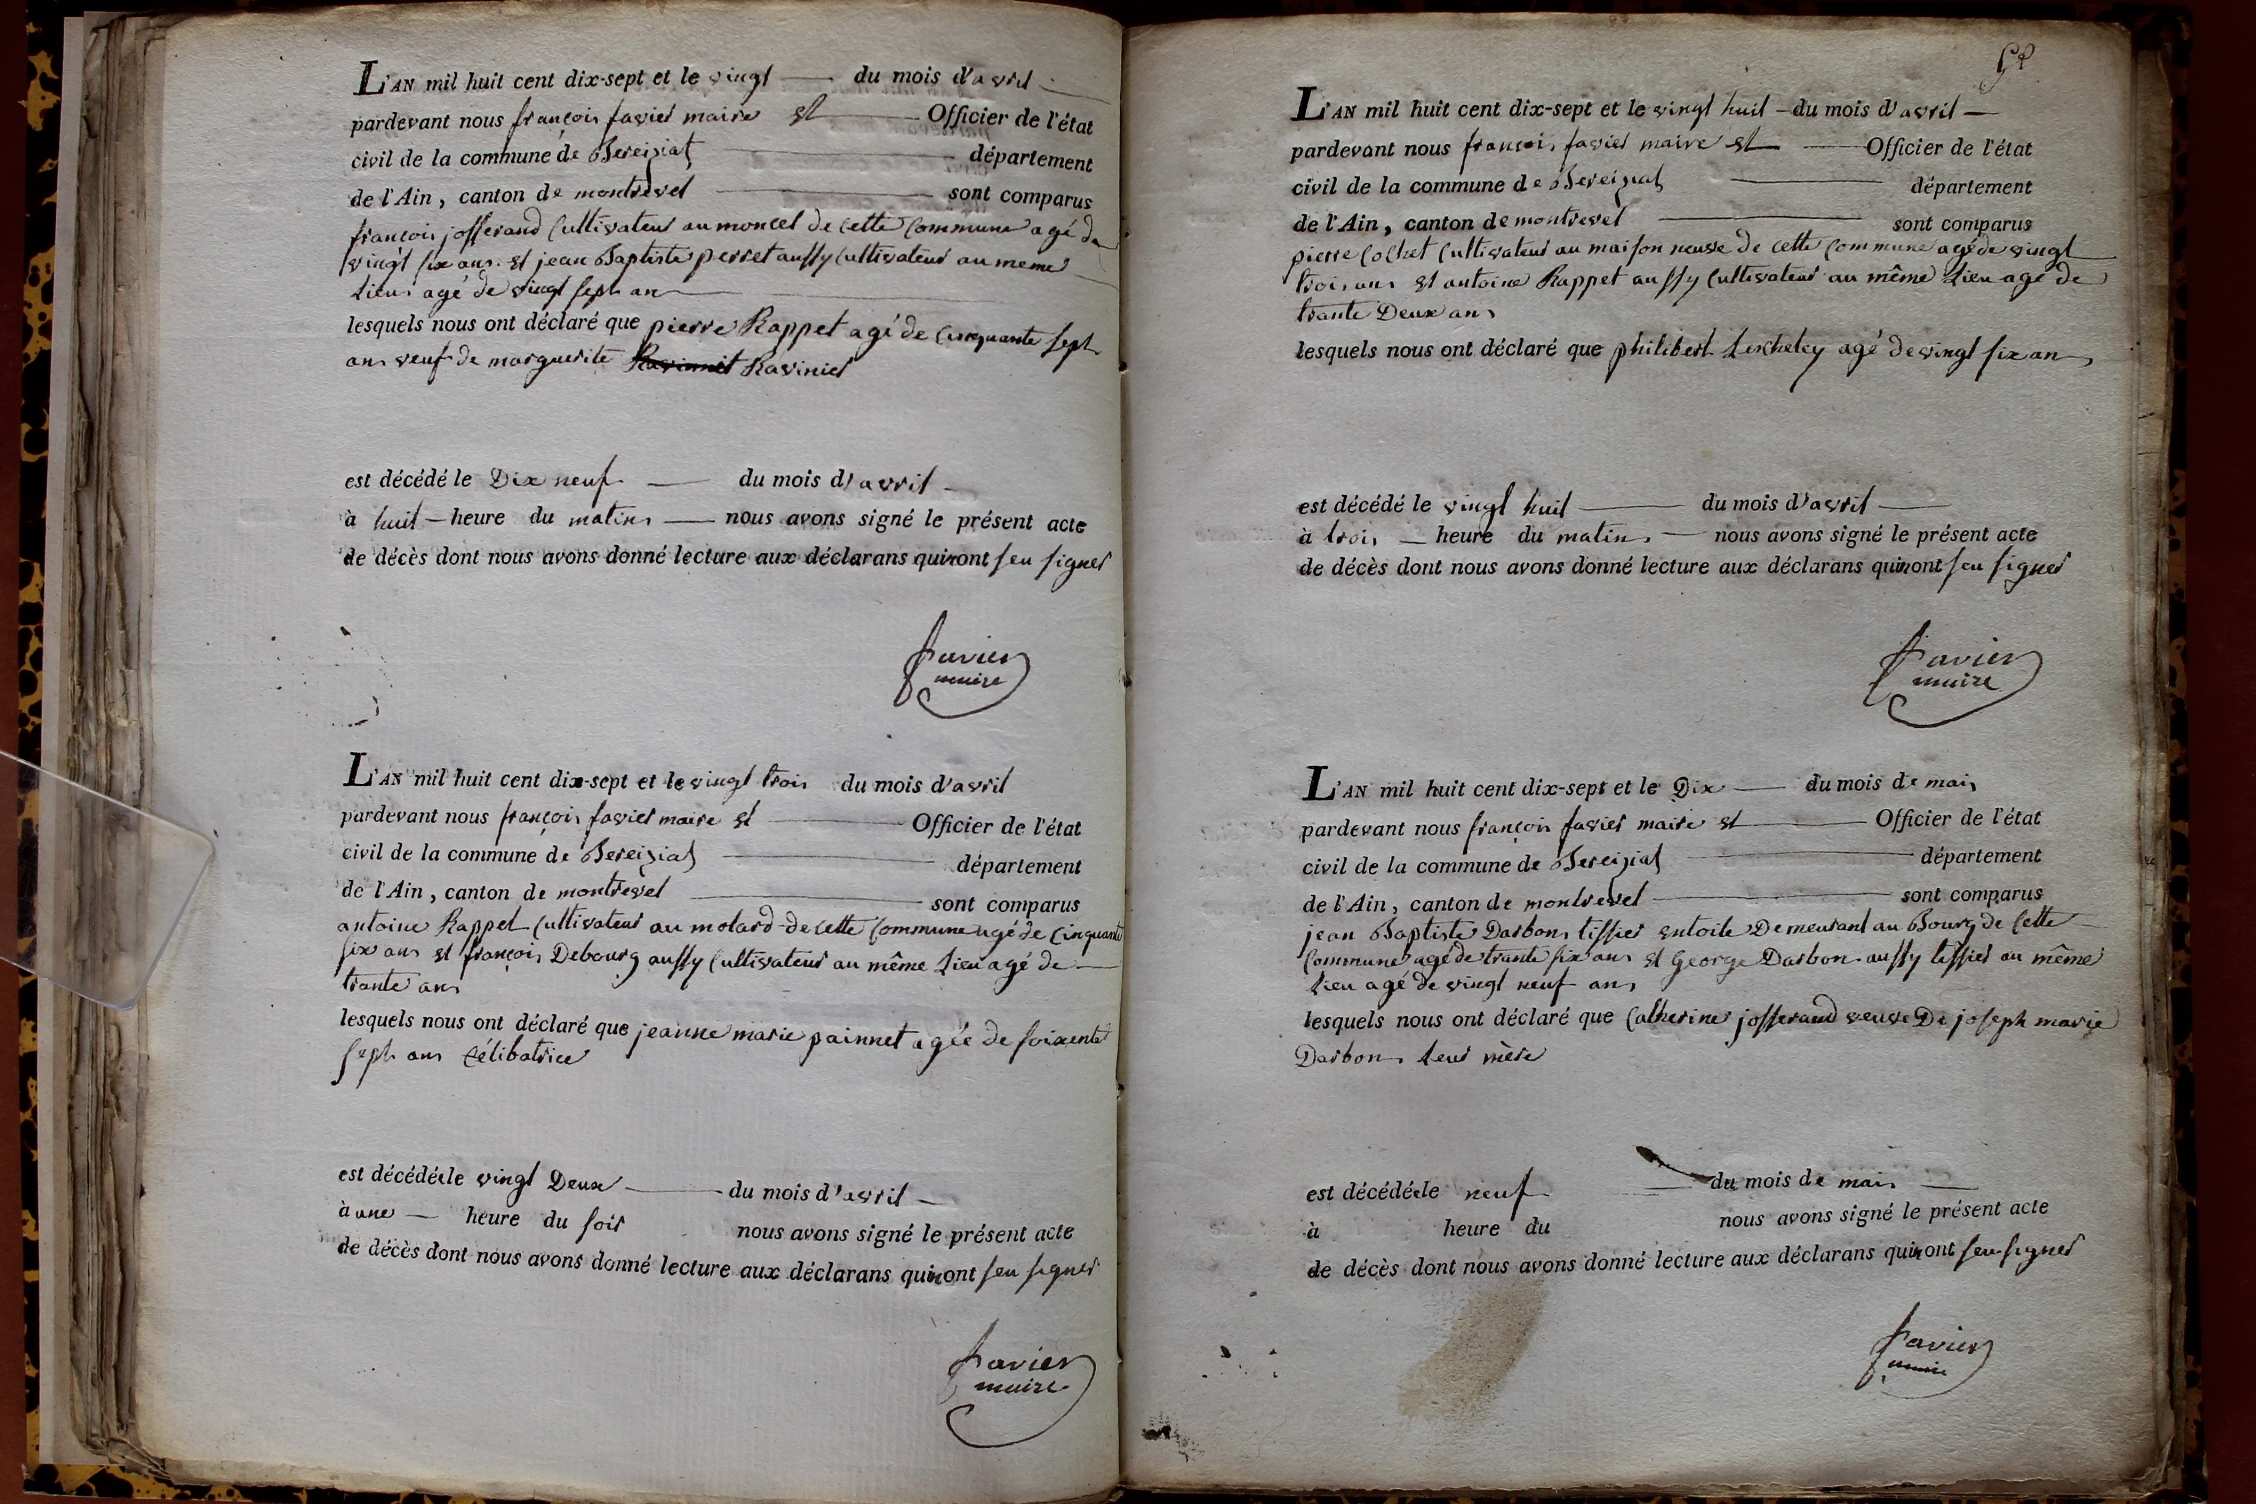 L'AN mil huit cent dix-sept et le vingt du mois d'avril
pardevant nous françois favier maire et Officier de l'état
civil de la commune de Bereiziat département
de l'Ain, canton de montrevel sont comparus
françois josserand Cultivateur au moncel de cette Commune agé de
vingt six ans et jean Baptiste perret aussy Cultivateur au meme
Lieu agé de vingt sept ans
lesquels nous ont déclaré que pierre Rappet agé de Cinquante sept
ans veuf de marguerite Ravinet Ravinier
est décédé le Dix neuf du mois d'avril
à huit heure du matins nous avons signé le présent acte
de décès dont nous avons donné lecture aux déclarans qui n'ont seu signer
favier
maire
L'AN mil huit cent dix-sept et le vingt trois du mois d'avril
pardevant nous françois favier maire et Officier de l'état
civil de la commune de Bereiziat département
de l'Ain, canton de montrevel sont comparus
antoine Rappet Cultivateur au molard de cette Commune agé de Cinquante
six ans et françois Debourg aussy Cultivateur au même Lieu agé de
trante ans
lesquels nous ont déclaré que jeanne marie painnet agée de soixente
sept ans Célibatrice
est décédée le vingt Deux du mois d'avril
à une heure du soir nous avons signé le présent acte
de décès dont nous avons donné lecture aux déclarans qui n'ont seu signer
favier
maire
L'AN mil huit cent dix-sept et le vingt huit du mois d'avril
pardevant nous françois favier maire et Officier de l'état
civil de la commune de Bereiziat département
de l'Ain, canton de montrevel sont comparus
pierre Cochet Cultivateur au maison neuve de cette Commune agé de vingt
trois ans et antoine Rappet aussy Cultivateur au même Lieu agé de
trante Deux ans
lesquels nous ont déclaré que philibert agé de vingt six ans
est décédé le vingt huit du mois d'avril
à trois heure du matins nous avons signé le présent acte
de décès dont nous avons donné lecture aux déclarans qui n'ont seu signer
favier
maire
L'AN mil huit cent dix-sept et le Dix du mois de mais
pardevant nous françois favier maire et Officier de l'état
civil de la commune de Bereiziat département
de l'Ain, canton de montrevel sont comparus
jean Baptiste Darbon tissier entoile Demeurant au Bourg de Cette
Commune agé de trante six ans et George Darbon aussy tissier au même
Lieu agé de vingt neuf ans
lesquels nous ont déclaré que Catherine josserand veuve De joseph marie
Darbon leur mère
est décédée le neuf du mois de mais
à heure du nous avons signé le présent acte
de décès dont nous avons donné lecture aux déclarans qui n'ont seu signer
favier
maire